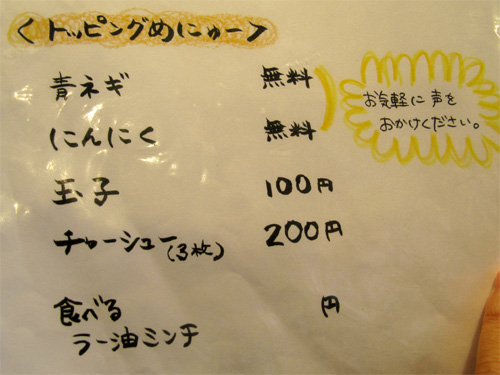 <トッピングめにゅー>
青ネギ 無料
にんにく 無料
お気軽に声を
おかけください。
玉子 100円
チャーシュー(3枚) 200円
食べる 円
ラー油ミンチ